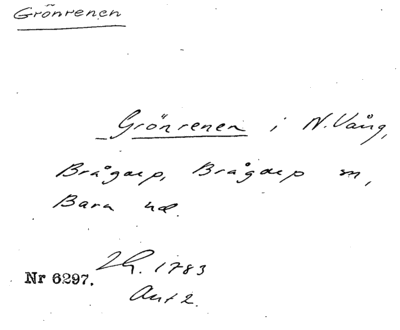 Grönrenen
Grönrenen i N.Vång,
Brågarp, Brågarp sn,
Bara hd.
Nr 6297. 1783
Akt 2.